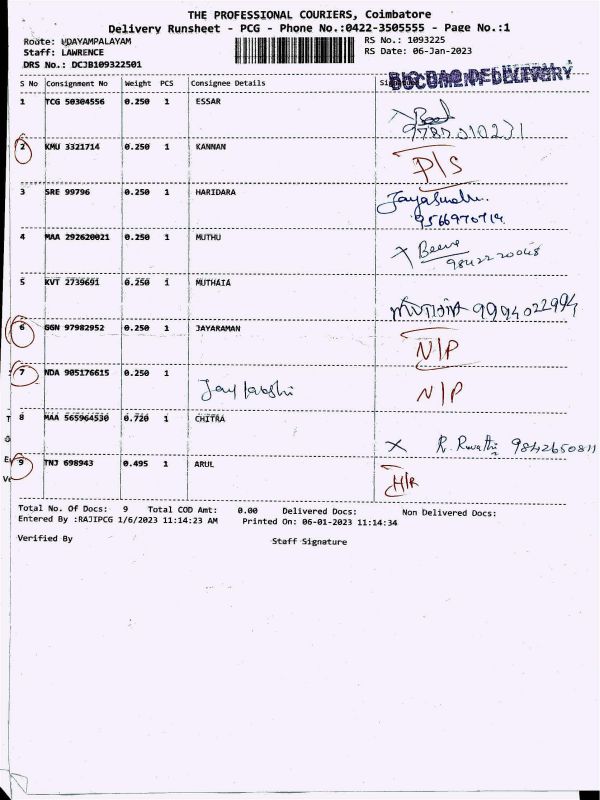 THE PROFESSIONAL COURIERS, Coimbatore
Delivery Runsheet - PCG - Phone No.:0422-3505555 - Page No.:1
Route: UDAYAMPALAYAM
Staff: LAWRENCE
DRS No.: DCJB109322501
RS No.: 1093225
RS Date: 06-Jan-2023
S No Consignment No Weight PCS Consignee Details
DOCUMENT DELIVERY
1 TCG 50304556 0.250 1 ESSAR
2 KMU 3321714 0.250 1 KANNAN P/S
3 SRE 99796 0.250 1 HARIDARA
9566970714
4 MAA 292620021 0.250 1 MUTHU
X
9842220048
5 KVT 2739691 0.250 1 MUTHAIA
9994022994
6 GGN 97982952 0.250 1 JAYARAMAN N/P
7 NDA 905176615 0.250 1 N/P
8 MAA 565964530 0.720 1 CHITRA
X R. Revathi 9842650811
9 TNJ 698943 0.495 1 ARUL
Total No. Of Docs: 9 Total COD Amt: 0.00 Delivered Docs: Non Delivered Docs:
Entered By :RAJIPCG 1/6/2023 11:14:23 AM Printed On: 06-01-2023 11:14:34
Verified By Staff Signature